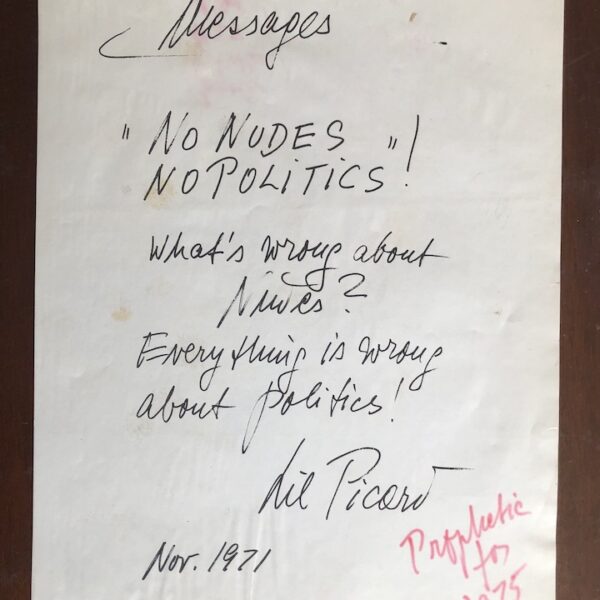 Messages
"NO NUDES "!
NO POLITICS
What's wrong about
Nudes?
Everything is wrong
about politics!
Lil Picard
Nov. 1971
Prophetic
for
1975